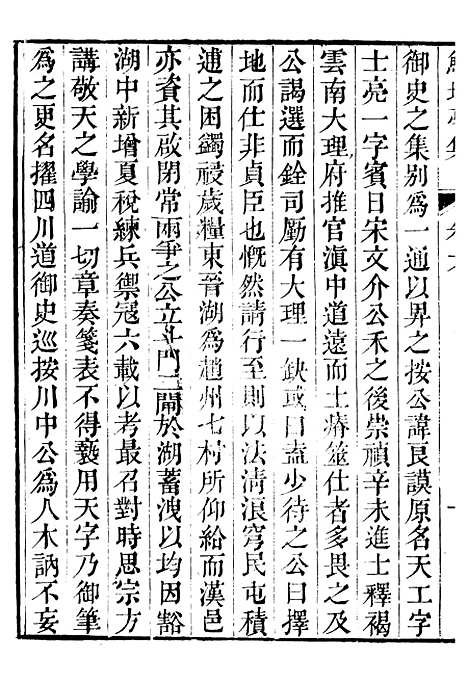 御史之集別爲一通以畀之按公諱良謨原名天工字
士亮一字賓日宋文介公禾之後崇禎辛未進士釋褐
雲南大理府推官滇中道遠而土瘠筮仕者多畏之及
公謁選而銓司勵有大理一缺或曰盍少待之公曰擇
地而仕非貞臣也慨然請行至則以法淸浪穹民屯積
逋之困蠲祲歲糧東晉湖爲趙州七村所仰給而漢邑
亦資其啟閉常兩爭之公立斗門二閘於湖蓄洩以均因豁
湖中新增夏稅練兵禦寇六載以考最召對時思宗方
講敬天之學諭一切章奏箋表不得褻用天字乃御筆
爲之更名擢四川道御史巡按川中公爲人木訥不妄